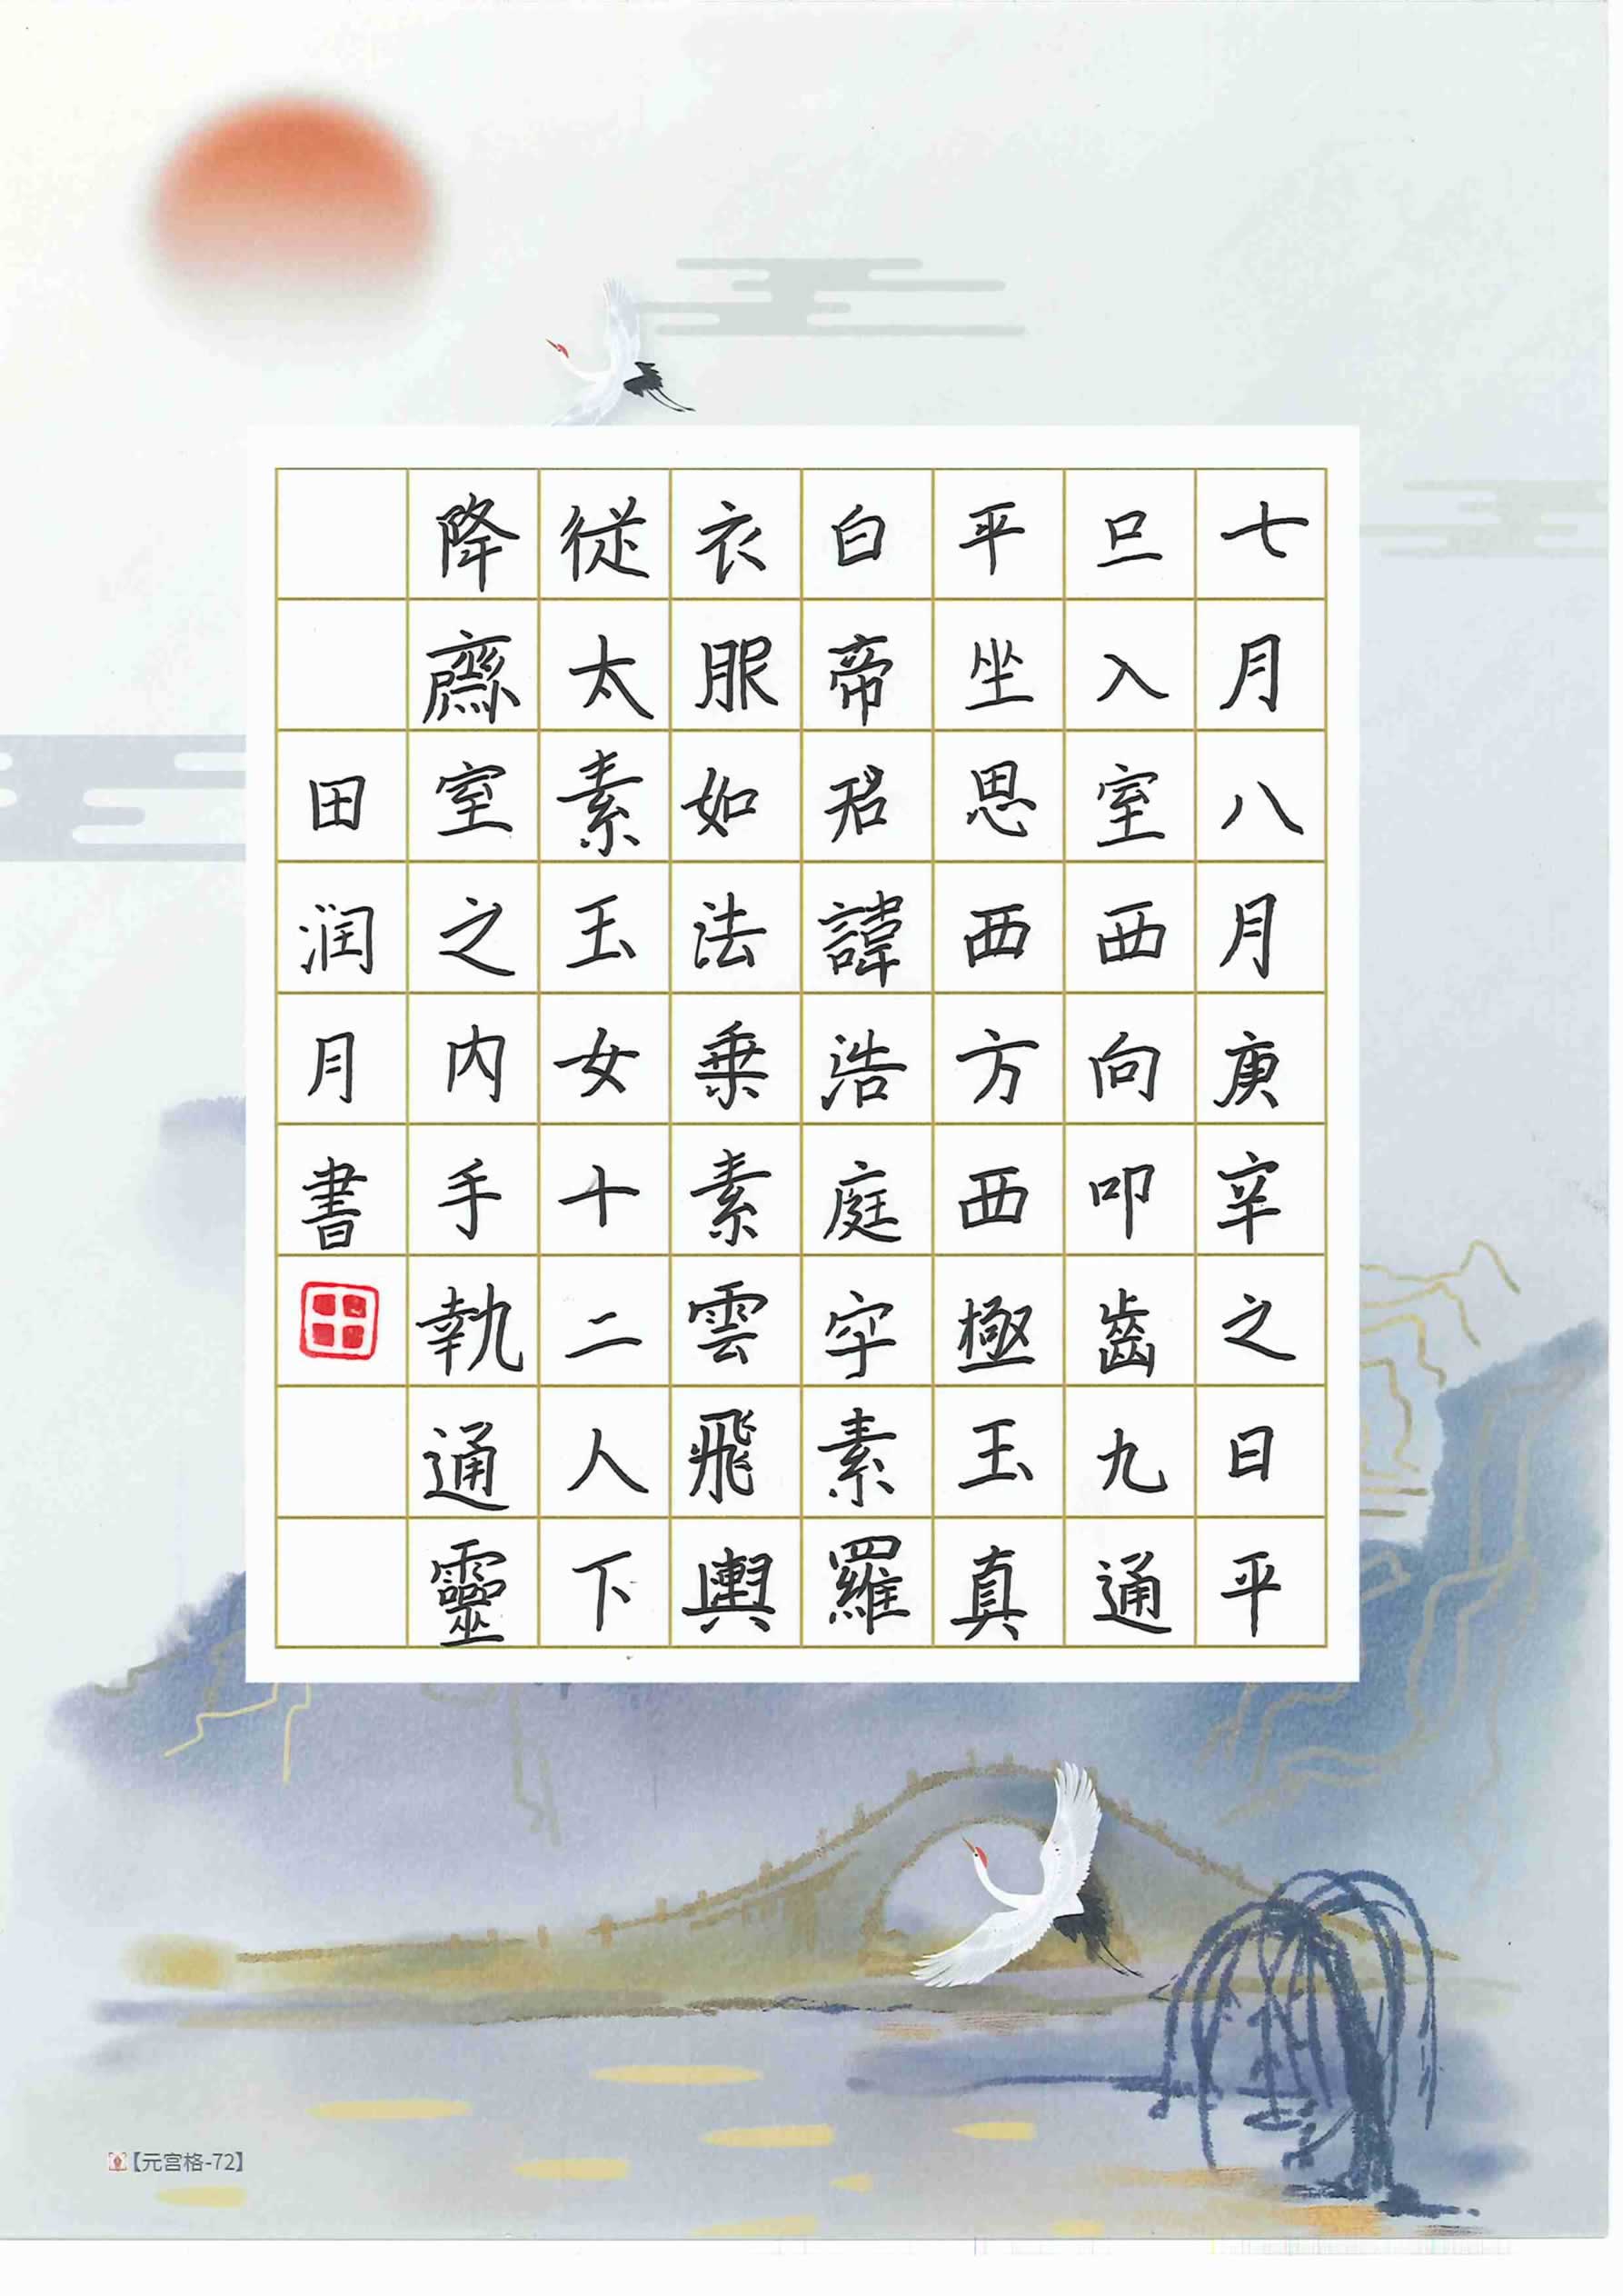 七月八月庚辛之日平
旦入室西向叩齒九通
平坐思西方西極玉真
白帝君諱浩庭字素羅
衣服如法乗素雲飛輿
從太素玉女十二人下
降齋室之内手執通靈
田润月書
田
【元宫格-72】